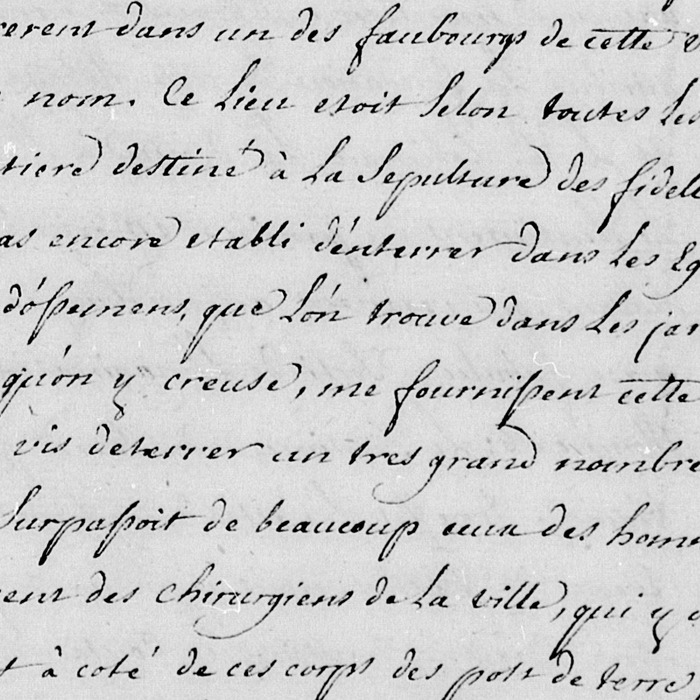 cerent dans un des faubourgs de cette v
nom. Ce Lieu etoit Selon toutes Les
tiere destiné à La Sepulture des fidele
as encore etabli d'enterrer dans Les Eg
d'óssemens, que L'ón trouve dans Les jar
qu'ón y creuse, me fournissent cette
vis deterrer un tres grand nombre
Surpassoit de beaucoup ceux des home
ent des chirurgiens de La ville, qui y a
t à coté de ces corps des pots de terres